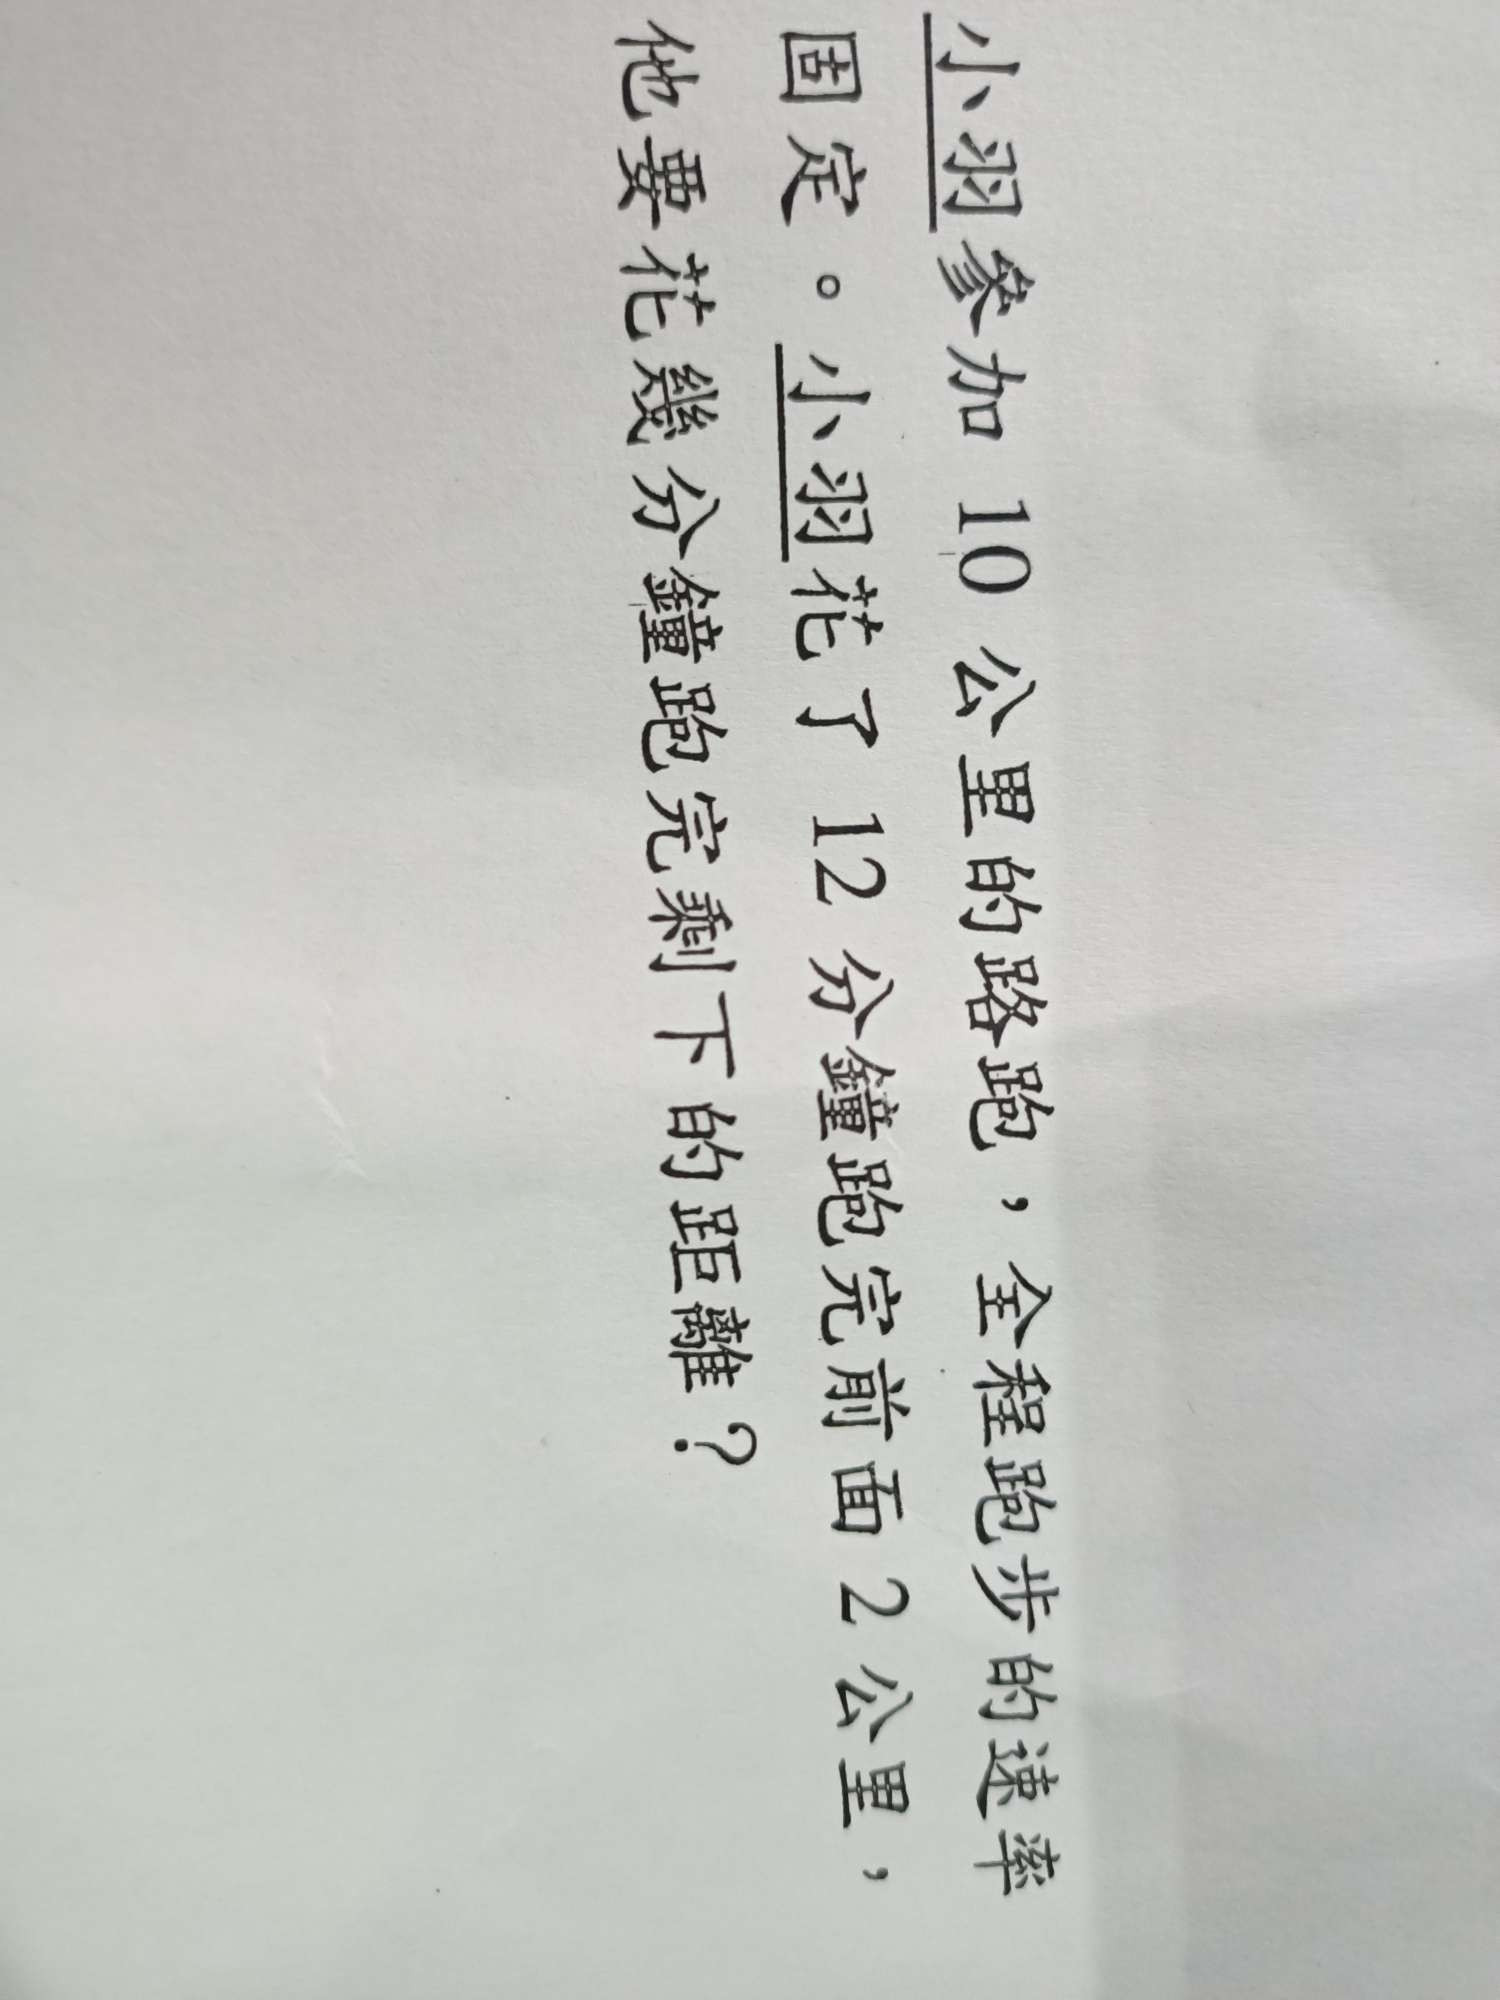 小羽參加 10 公里的路跑，全程跑步的速率
固定。小羽花了 12 分鐘跑完前面 2 公里，
他要花幾分鐘跑完剩下的距離？